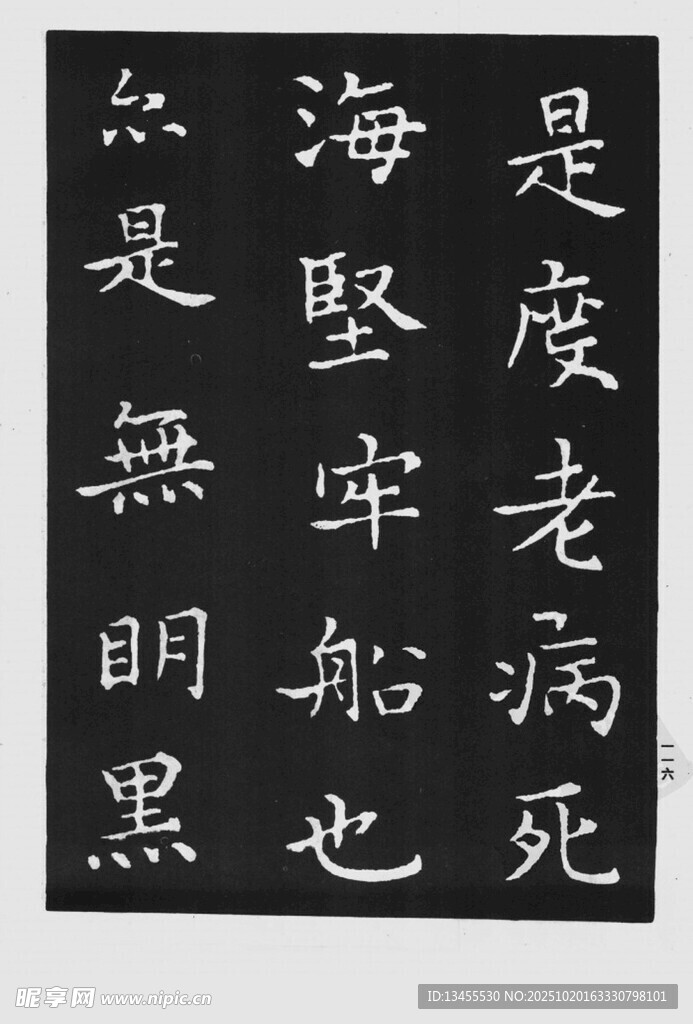 是度老病死
海堅牢船也
尒是無眀黑
一一六
昵享网 www.nipic.cn
ID:13455530 NO:20251020163330798101